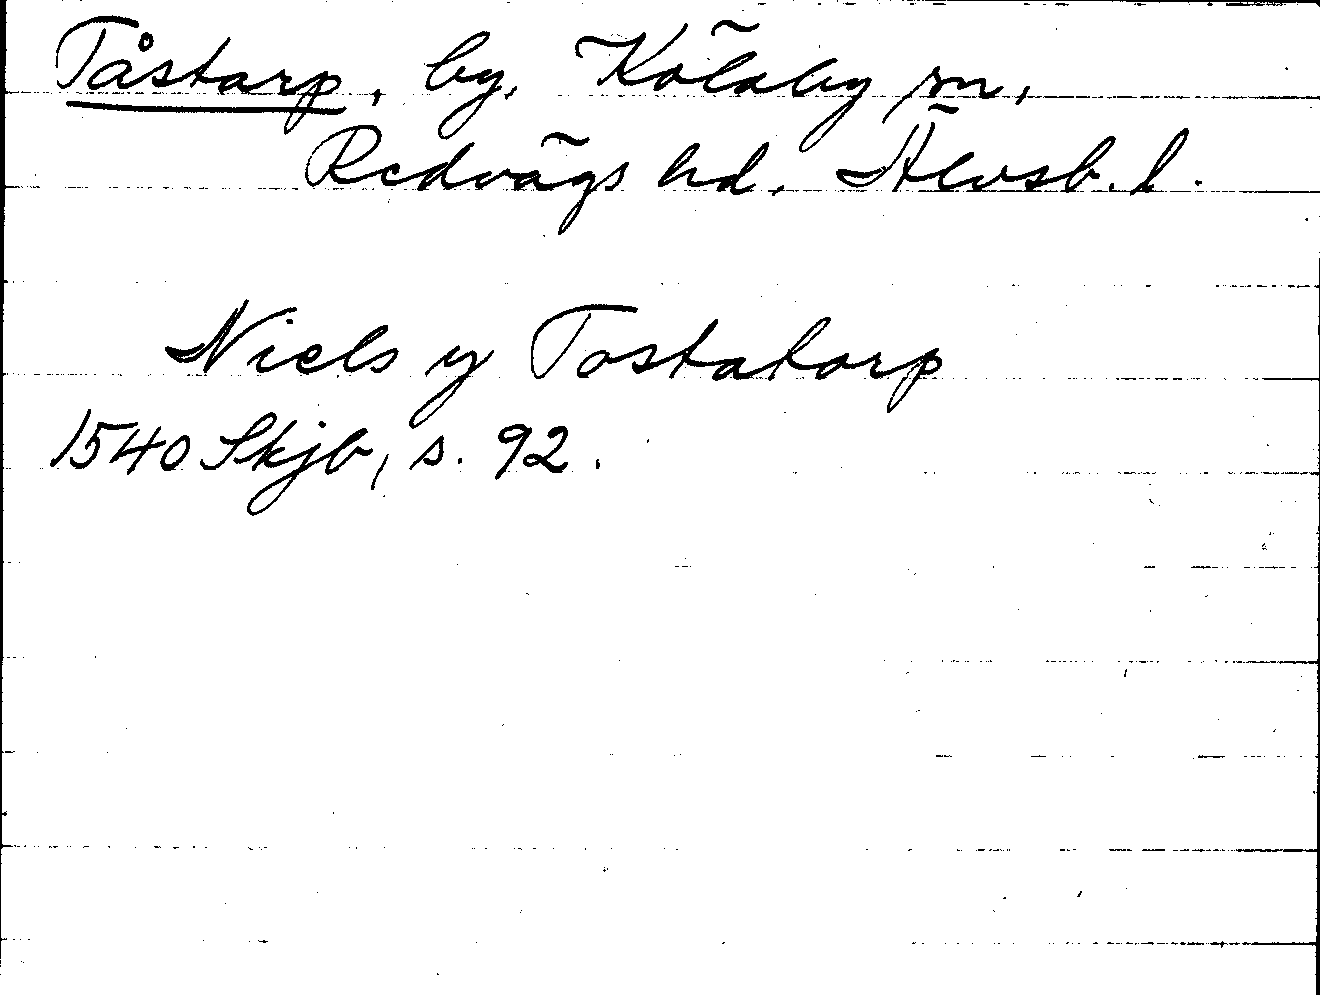 Tåstarp, by, Kölaby sn,
Redvägs hd. Älvsb. l.
Niels y Tostatorp
1540 Skjb, s. 92.